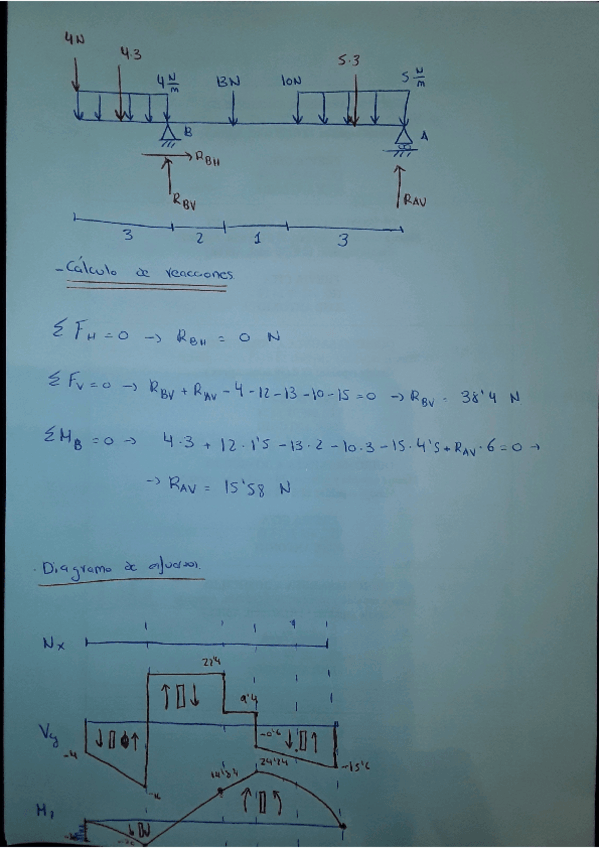 4N 4·3 4 N/m 13N 10N 5·3 5 N/m
B A
R_BH
R_BV R_AV
3 2 1 3
- Cálculo de reacciones
Σ F_H = 0 → R_BH = 0 N
Σ F_V = 0 → R_BV + R_AV - 4 - 12 - 13 - 10 - 15 = 0 → R_BV = 38'4 N
Σ M_B = 0 → 4·3 + 12·1'5 - 13·2 - 10·3 - 15·4'5 + R_AV·6 = 0 →
→ R_AV = 15'58 N
· Diagrama de esfuerzos
Nx
22'4
9'4
Vy -4 -0'6
-15'6
24'24